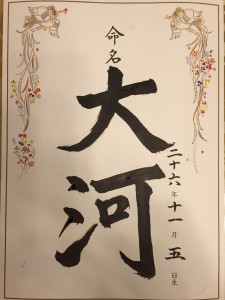 命名
大河
二十六年十一月五日生